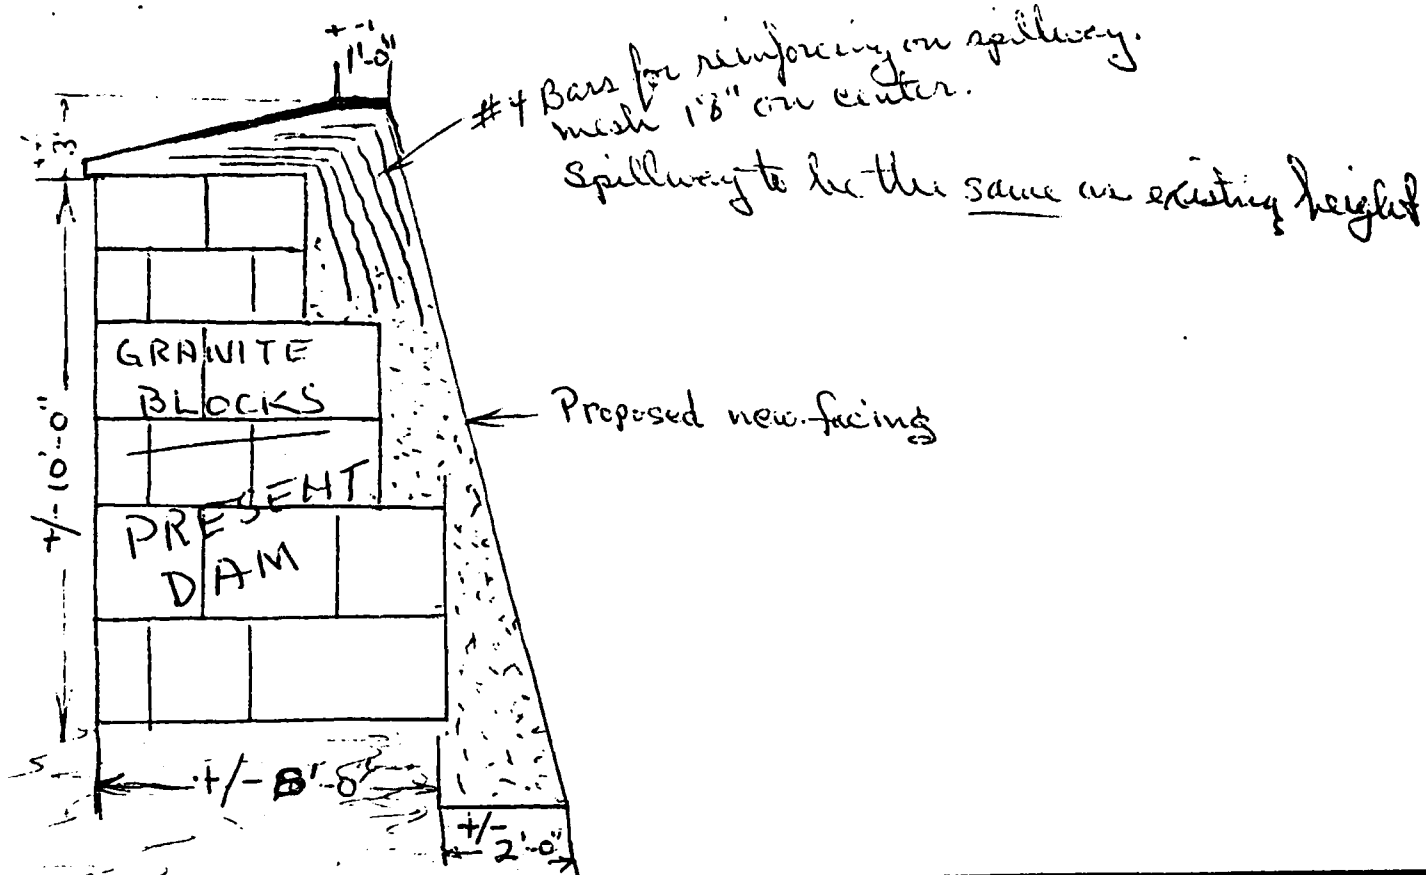 +-1
1'-0"
#4 Bars for reinforcing on spillway.
mesh 1'0" on center.
Spillway to be the same as existing height
+- 3'
GRANITE
BLOCKS
Proposed new facing
+/- 10'-0"
PRESENT
DAM
+/- 8'-0"
+/-
2'-0"